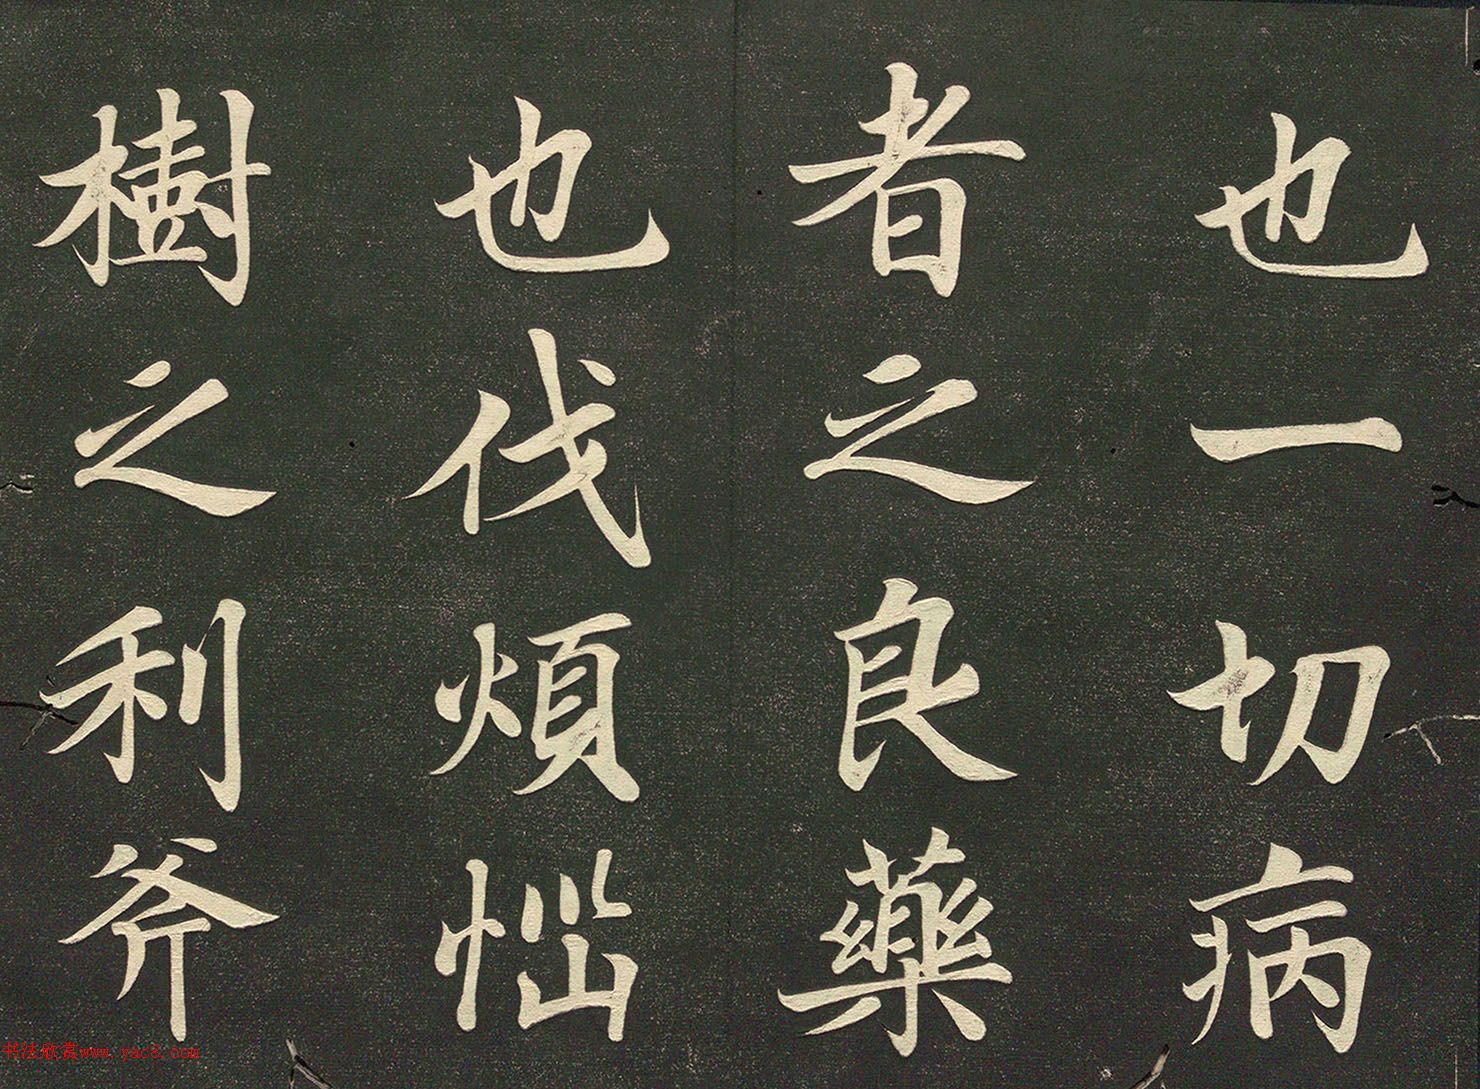 也一切病
者之良藥
也伐煩惱
樹之利斧
书法欣赏www.yac8.com